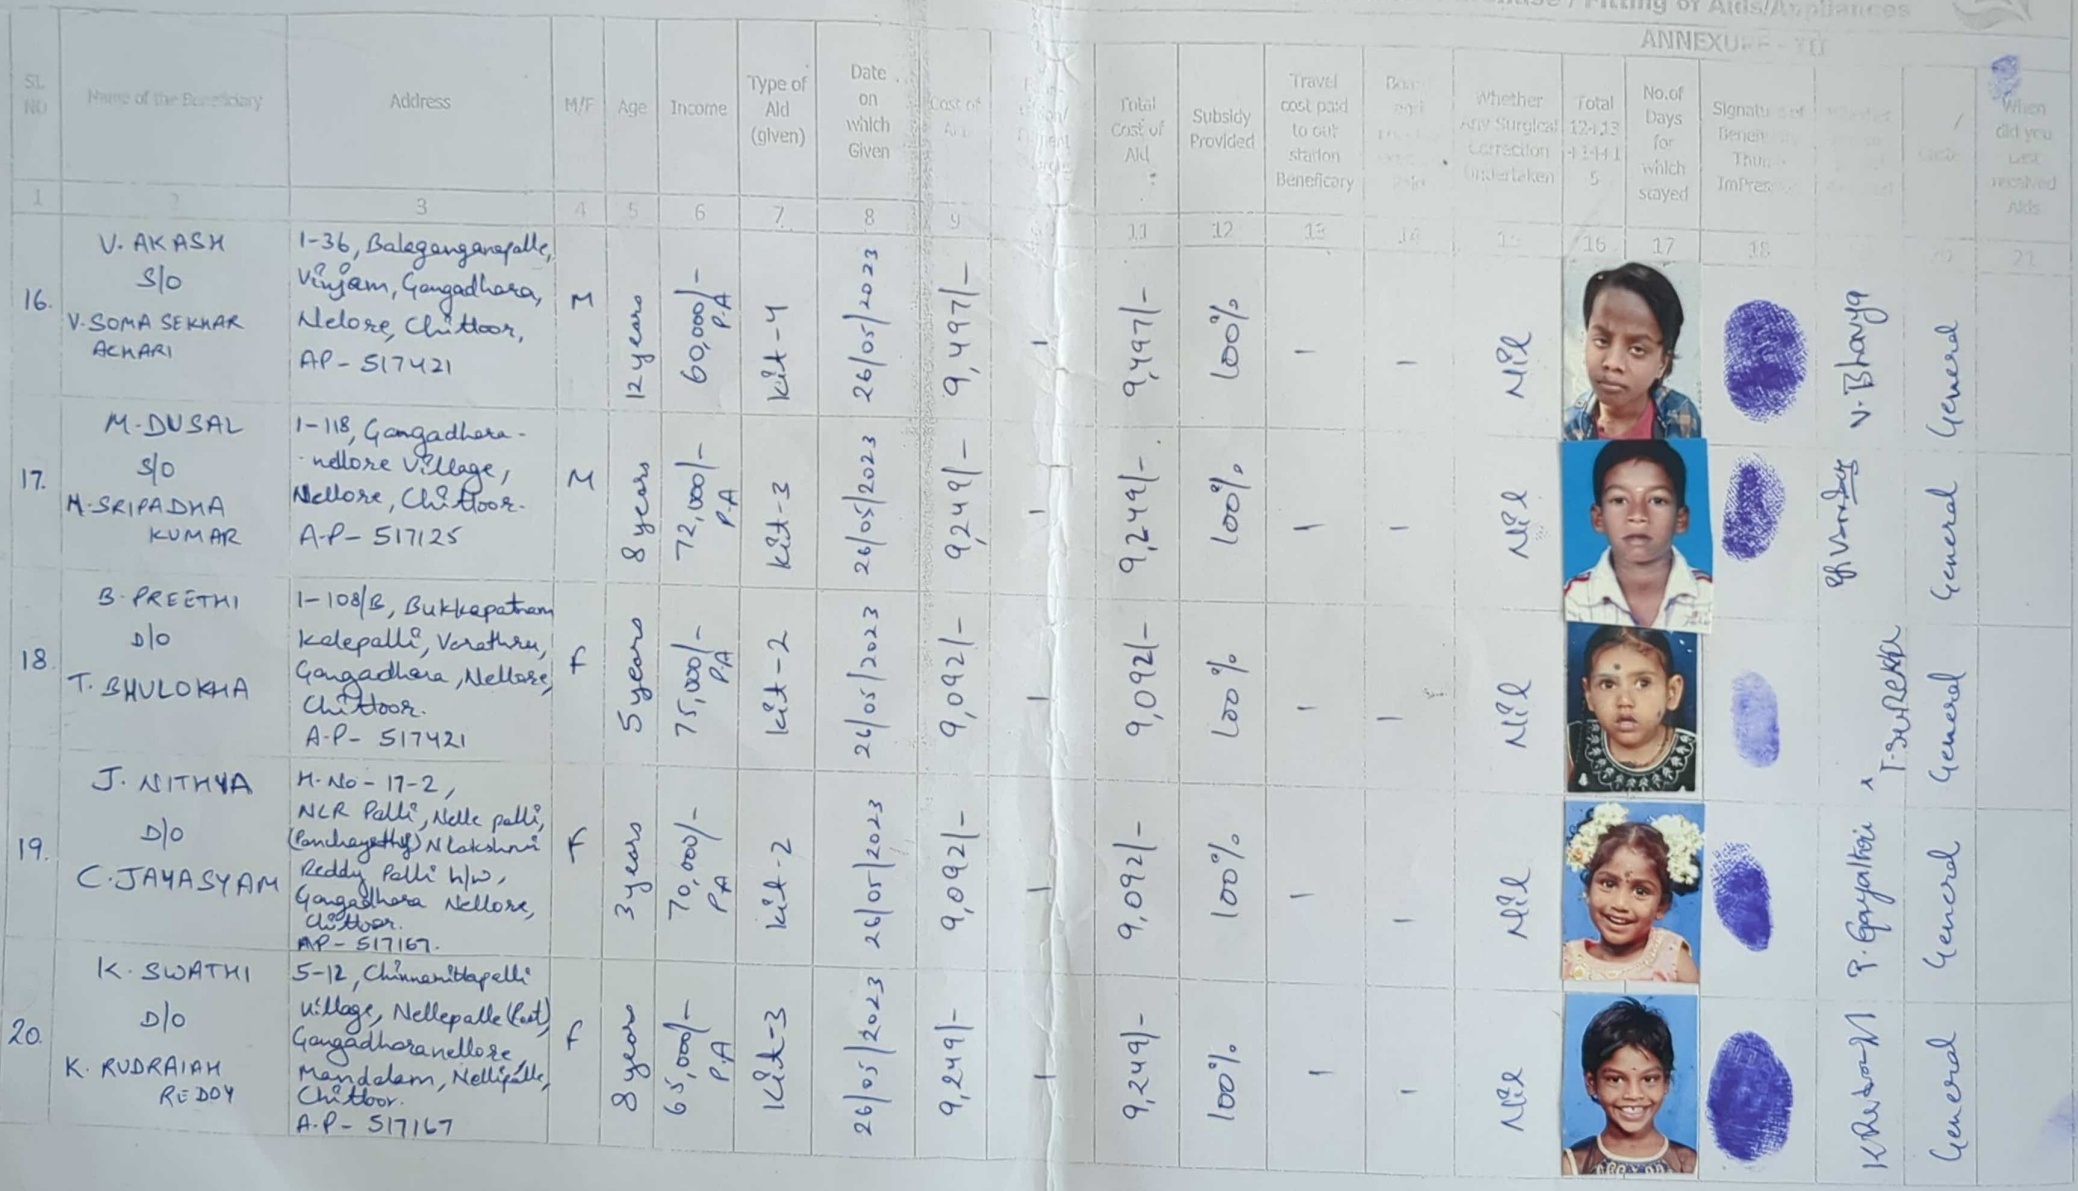 Fitting of Aids/Appliances
ANNEXURE -
SL NO
Name of the Beneficiary
Address
M/F
Age
Income
Type of Aid (given)
Date on which Given
Cost of
Total Cost of Aid
Subsidy Provided
Travel cost paid to out station Beneficary
Whether Any Surgical Correction Undertaken
Total 12+13
No.of Days for which stayed
When did you Last received Aids
1 2 3 4 5 6 7 8 9 11 12 13 14 15 16 17 18 20 21
16.
V. AKASH
S/O
V. SOMA SEKHAR
ACHARI
1-36, Balaganganapalle,
Vinjam, Gangadhara,
Nelore, Chittoor,
AP - 517421
M
12 years
60,000/-
P.A
Kit-4
26/05/2023
9,497/-
-
9,497/-
100%
-
-
Nil
V. Bhavya
General
17.
M. DUSAL
S/O
M. SRIPADHA
KUMAR
1-118, Gangadhara-
nellore Village,
Nellore, Chittoor.
A.P - 517125
M
8 years
72,000/-
P.A
Kit-3
26/05/2023
9,249/-
-
9,249/-
100%
-
-
Nil
General
18.
B. PREETHI
D/O
T. BHULOKHA
1-108/B, Bukkapatnam
Kalepalli, Varathru,
Gangadhara, Nellore,
Chittoor.
A.P - 517421
F
5 years
75,000/-
P.A
Kit-2
26/05/2023
9,092/-
-
9,092/-
100%
-
-
Nil
General
19.
J. NITHYA
D/O
C. JAYASYAM
H.No - 17-2,
NLR Palli, Nelle palli,
(Panchayathy) N Lakshmi
Reddy Palli h/w,
Gangadhara Nellore,
Chittoor.
AP - 517167.
F
3 years
70,000/-
P.A
Kit-2
26/05/2023
9,092/-
-
9,092/-
100%
-
-
Nil
P. Gayathri
General
20.
K. SWATHI
D/O
K. RUDRAIAH
REDDY
5-12, Chinnamittapalli
Village, Nellepalle (Post)
Gangadharanellore
Mandalam, Nellipalle,
Chittoor.
A.P - 517167
F
8 years
65,000/-
P.A
Kit-3
26/05/2023
9,249/-
-
9,249/-
100%
-
-
Nil
General